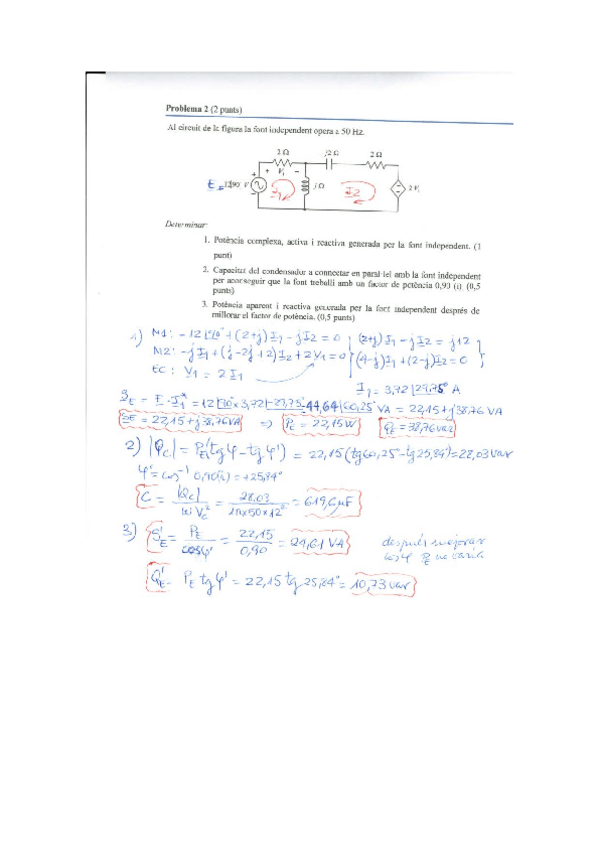 Problema 2 (2 punts)
Al circuit de la figura la font independent opera a 50 Hz.
2 Ω j2 Ω 2 Ω
+ V₁ −
E = 12∠90 V jΩ 2 V₁
I₁ I₂
Determinar:
1. Potència complexa, activa i reactiva generada per la font independent. (1
punt)
2. Capacitat del condensador a connectar en paral·lel amb la font independent
per aconseguir que la font treballi amb un factor de potència 0,90 (i). (0,5
punts)
3. Potència aparent i reactiva generada per la font independent després de
millorar el factor de potència. (0,5 punts)
1) M1: -12∠90° + (2+j)I₁ - jI₂ = 0 } (2+j)I₁ - jI₂ = j12
M2: -jI₁ + (j-2j+2)I₂ + 2V₁ = 0 } (4-j)I₁ + (2-j)I₂ = 0
EC: V₁ = 2I₁
I₁ = 3,72∠29,75° A
S_E = E·I₁* = 12∠90° × 3,72∠-29,75° = 44,64∠60,25° VA = 22,15 + j38,76 VA
S_E = 22,15 + j38,76 VA ⇒ P_E = 22,15 W Q_E = 38,76 var
2) |Q_C| = P_E(tg φ - tg φ') = 22,15 (tg 60,25 - tg 25,84°) = 28,03 var
φ' = cos⁻¹ 0,90(i) = +25,84°
C = |Q_C| / ωV_C² = 28,03 / 2π×50×12² = 619,6 µF
3) S'_E = P_E / cos φ' = 22,15 / 0,90 = 24,61 VA
después mejorar
cos φ P_E no varía
Q'_E = P_E tg φ' = 22,15 tg 25,84° = 10,73 var